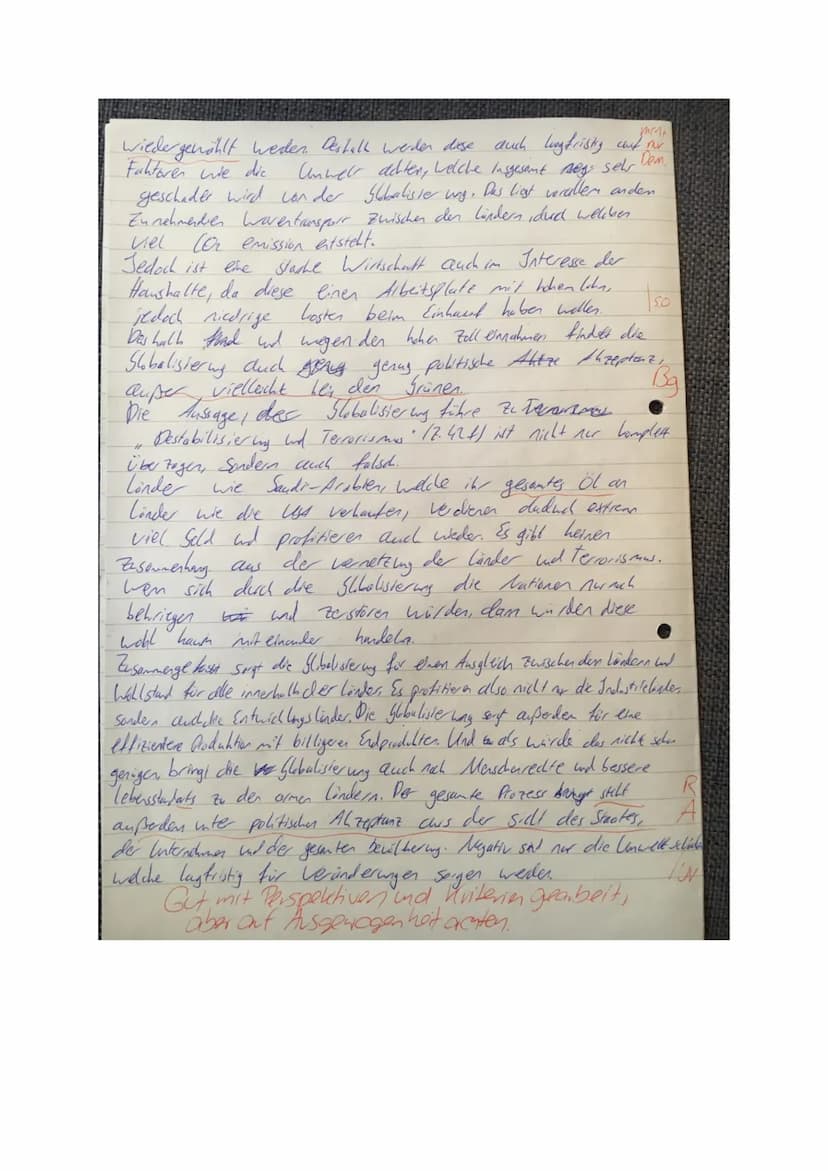 wiedergewählt werden. Deshalb werden diese auch langfristig auf
Faktoren wie die Umwelt achten, welche insgesamt sehr
geschadet wird von der Globalisierung. Das liegt vorallem an dem
Zunehmenden Warentransport zwischen den Ländern, durch welchen
viel CO2 emission entsteht.
Jedoch ist eine starke Wirtschaft auch im Interesse der
Haushalte, da diese einen Arbeitsplatz mit hohem Lohn,
jedoch niedrige Kosten beim Einkauf haben wollen.
Iso
Deshalb und wegen den hohen Zolleinnahmen findet die
Globalisierung auch genug politische Akzeptanz,
außer vielleicht bei den Grünen.
Bg
Die Aussage, das Globalisierung führe zu
„Destabilisierung und Terrorismus" (Z. 42 f) ist nicht nur komplett
überzogen, sondern auch falsch.
Länder wie Saudi-Arabien, welche ihr gesamtes Öl an
Länder wie die USA verkaufen, verdienen dadurch extrem
viel Geld und profitieren auch wieder. Es gibt keinen
Zusammenhang aus der Vernetzung der Länder und Terrorismus.
Wenn sich durch die Globalisierung die Nationen nurnoch
bekriegen und zerstören würden, dann würden diese
wohl kaum miteinander handeln.
Zusammengefasst sorgt die Globalisierung für einen Ausgleich zwischen den Ländern und
Wohlstand für alle innerhalb der Länder. Es profitieren also nicht nur die Industrieländer,
sondern auch die Entwicklungsländer. Die Globalisierung sorgt außerdem für eine
effizientere Produktion mit billigeren Endprodukten. Und als würde das nicht schon
genügen, bringt die Globalisierung auch noch Menschenrechte und bessere
Lebensstandarts zu den armen Ländern. Der gesamte Prozess stellt
R
außerdem unter politischen Akzeptanz aus der Sicht des Staates,
A
der Unternehmen und der gesamten bevölkerung. Negativ sind nur die Umweltschäden
welche langfristig für Veränderungen sorgen werden.
Gut mit Perspektiven und Kriterien gearbeitet,
aber auf Ausgewogenheit achten.